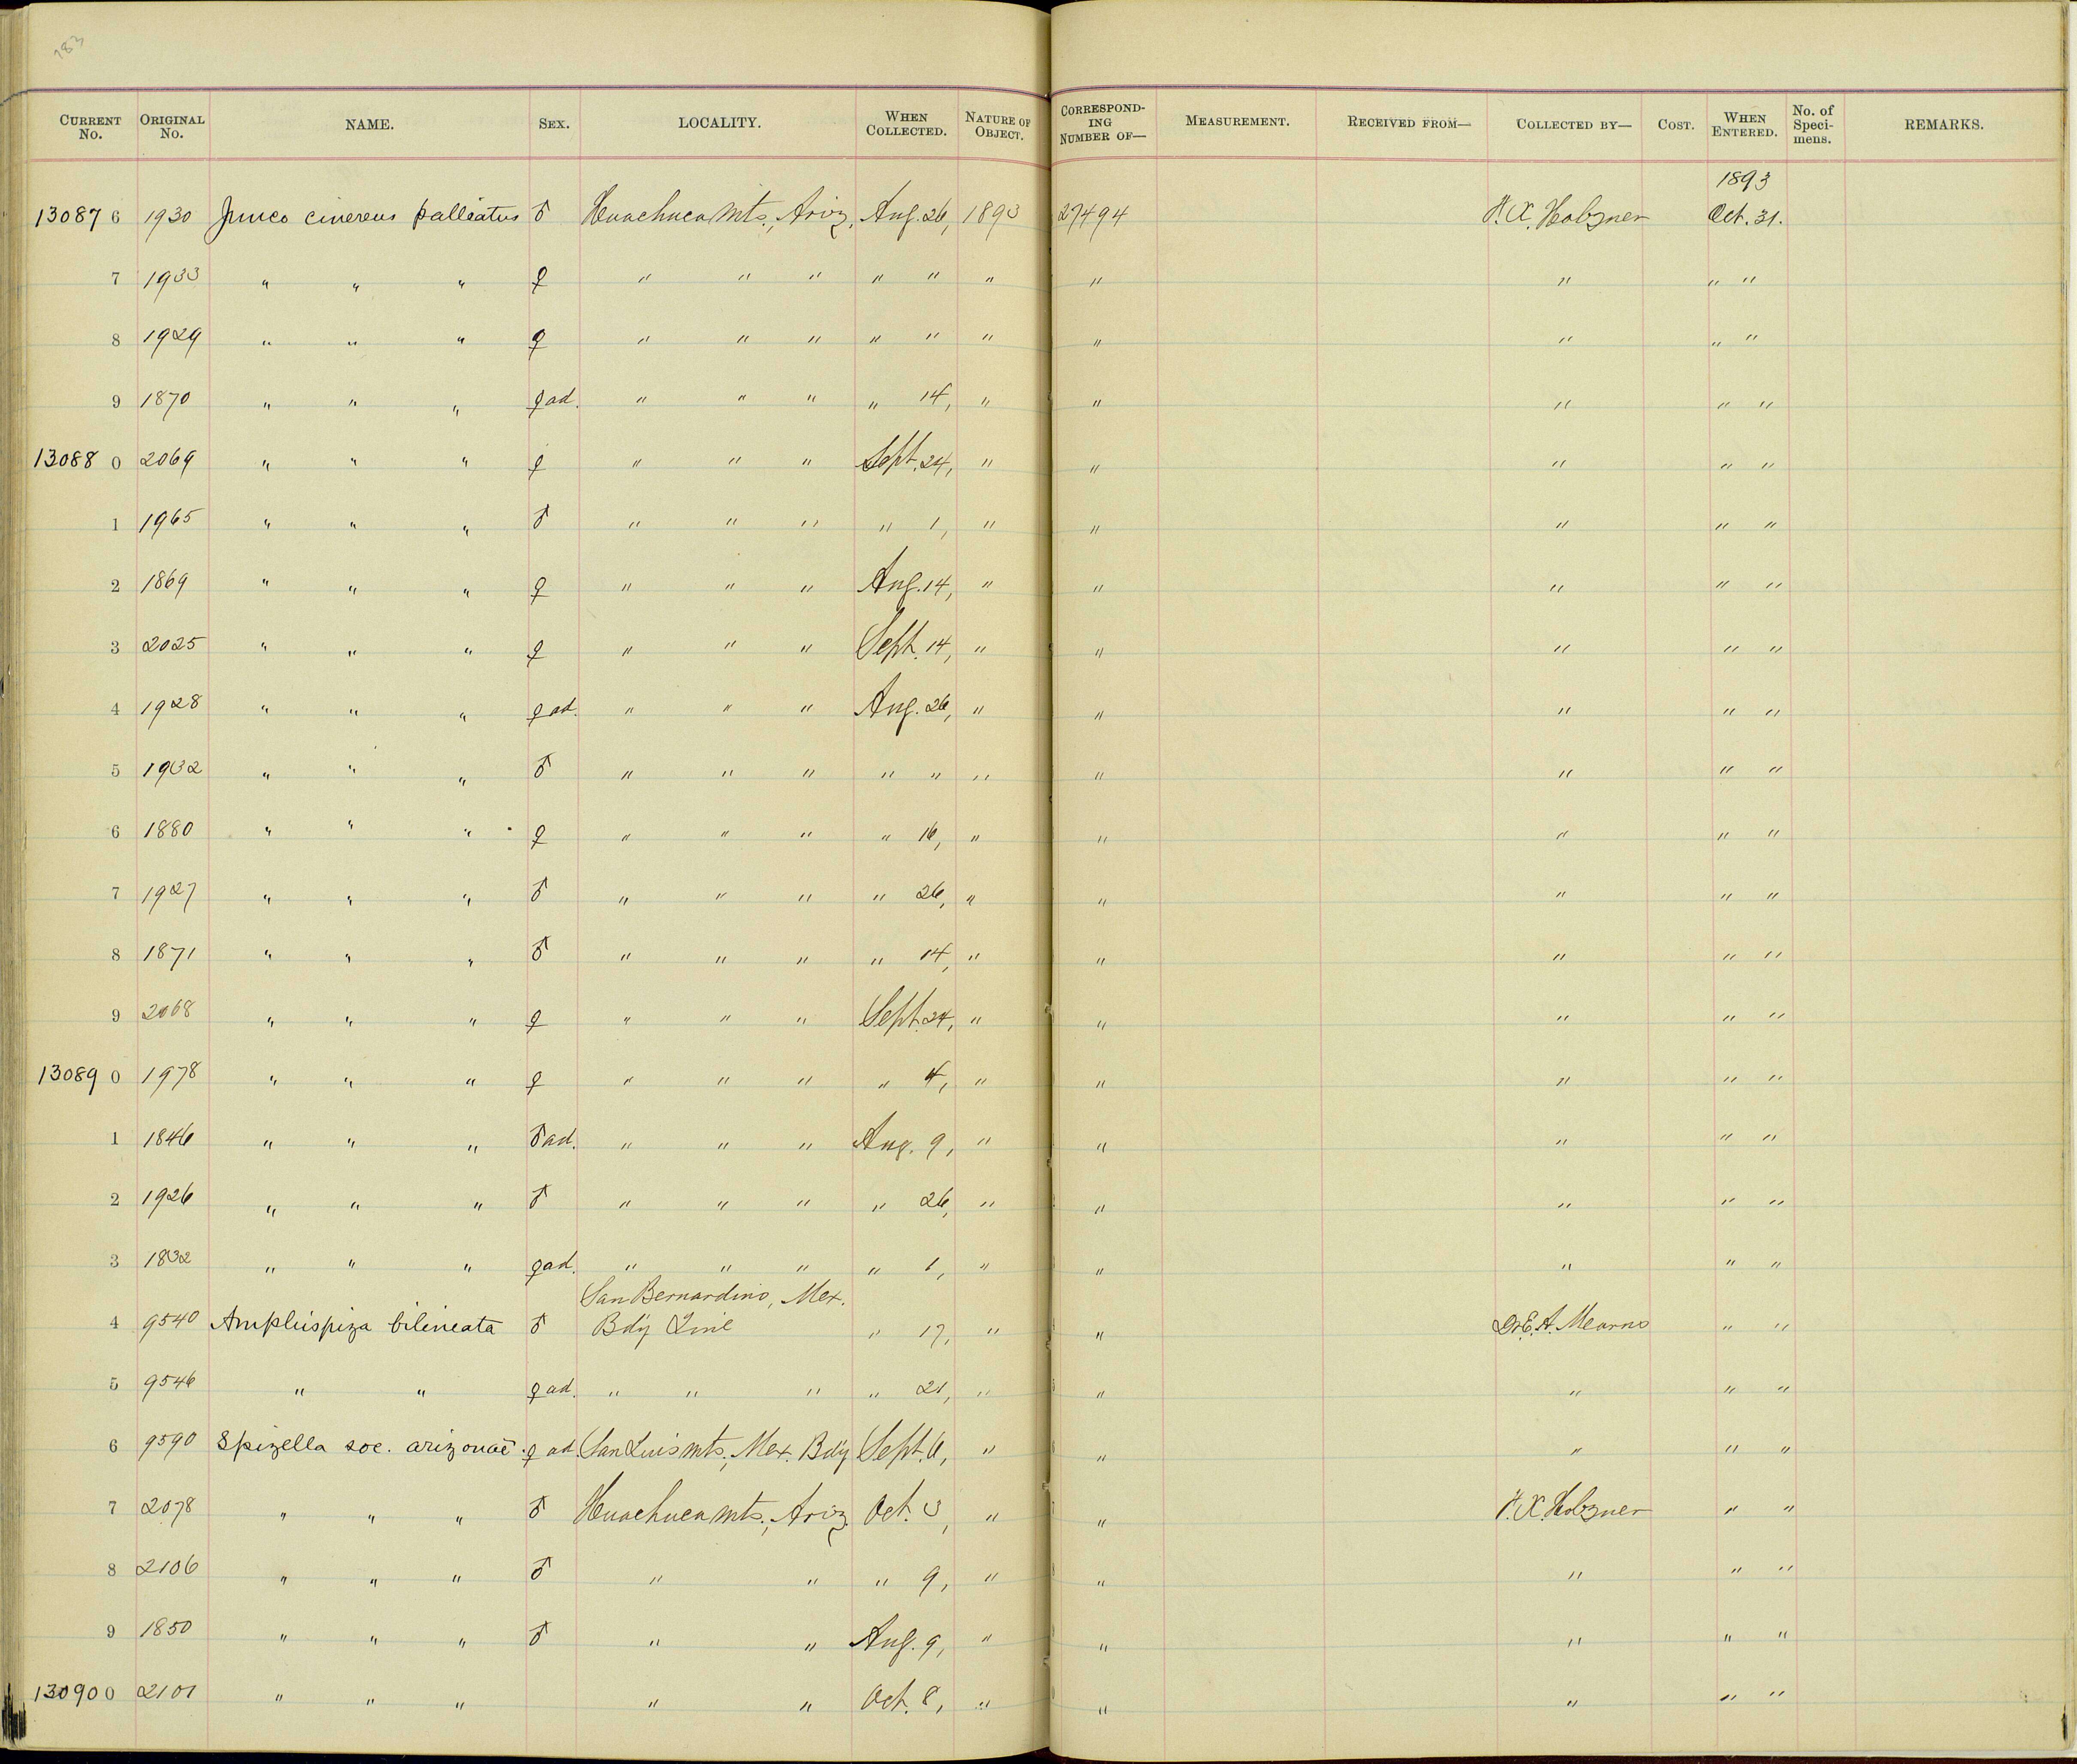 183
CURRENT No. ORIGINAL No. NAME. SEX. LOCALITY. WHEN COLLECTED. NATURE OF OBJECT. CORRESPONDING NUMBER OF— MEASUREMENT. RECEIVED FROM— COLLECTED BY— COST. WHEN ENTERED. No. of Specimens. REMARKS.
1893
13087 6 1930 Junco cinereus palliatus ♂ Huachuca Mts., Ariz. Aug. 26, 1893 27494 F. X. Holzner Oct. 31.
7 1933 " " " ♀ " " " " " " " " " "
8 1929 " " " ♀ " " " " " " " " " "
9 1870 " " " ♀ ad. " " " " 14, " " " " "
13088 0 2069 " " " ♀ " " " Sept. 24, " " " " "
1 1965 " " " ♂ " " " " 1, " " " " "
2 1869 " " " ♀ " " " Aug. 14, " " " " "
3 2025 " " " ♀ " " " Sept. 14, " " " " "
4 1928 " " " ♀ ad. " " " Aug. 26, " " " " "
5 1932 " " " ♂ " " " " " " " " " "
6 1880 " " " ♀ " " " " 16, " " " " "
7 1927 " " " ♂ " " " " 26, " " " " "
8 1871 " " " ♂ " " " " 14, " " " " "
9 2068 " " " ♀ " " " Sept. 24, " " " " "
13089 0 1978 " " " ♀ " " " " 4, " " " " "
1 1846 " " " ♂ ad. " " " Aug. 9, " " " " "
2 1926 " " " ♂ " " " " 26, " " " " "
3 1832 " " " ♀ ad. " " " " 1, " " " " "
San Bernardino, Mex.
4 9540 Amphispiza bilineata ♂ Bd'y Line " 17, " " Dr. E. A. Mearns " "
5 9546 " " ♀ ad. " " " " 21, " " " " "
6 9590 Spizella soc. arizonae ♀ ad. San Luis Mts., Mex. Bd'y Sept. 6, " " " " "
7 2078 " " " ♂ Huachuca Mts., Ariz. Oct. 3, " " F. X. Holzner " "
8 2106 " " " ♂ " " " 9, " " " " "
9 1850 " " " ♂ " " Aug. 9, " " " " "
13090 0 2101 " " " " " Oct. 8, " " " " "